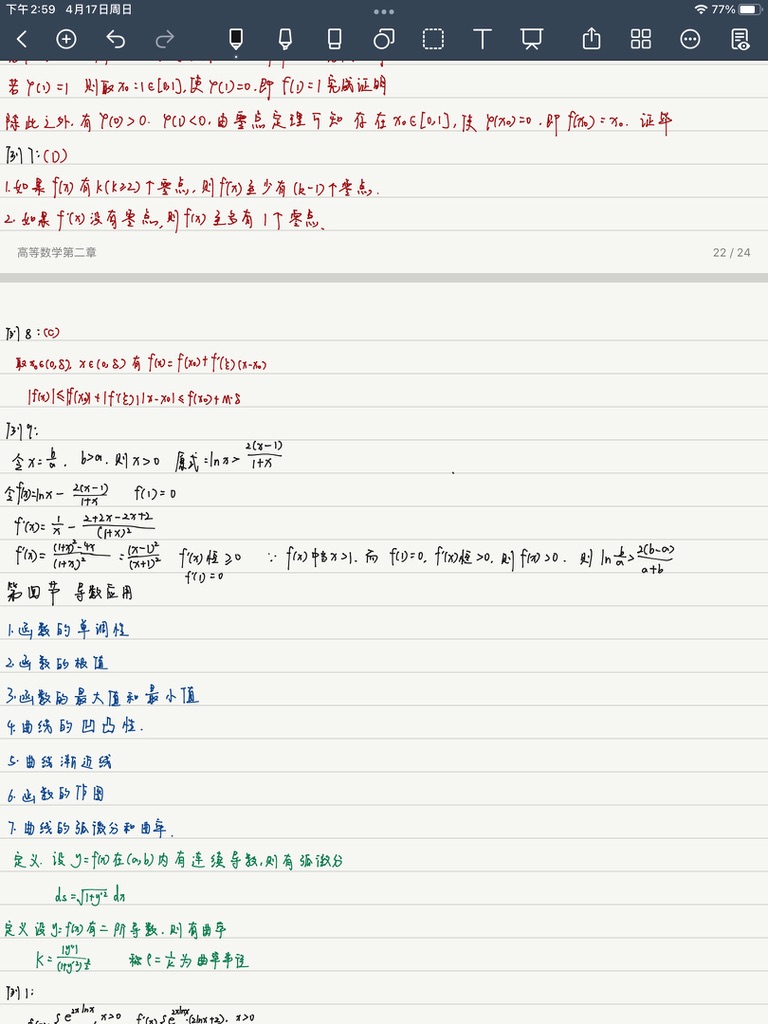 下午2:59 4月17日周日
77%
若 φ(1)=1 则取 x₀=1∈[0,1],使 φ(1)=0.即 f(1)=1 完成证明
除此之外,有 φ(0)>0. φ(1)<0,由零点定理可知 存在 x₀∈[0,1],使 φ(x₀)=0.即 f(x₀)=x₀. 证毕
例7:(D)
1.如果 f(x) 有 k(k≥2)个零点,则 f'(x)至少有 (k-1)个零点.
2.如果 f'(x) 没有零点,则 f(x) 至多有 1个零点.
高等数学第二章
22 / 24
例8:(C)
取 x₀∈(0,δ), x∈(0,δ) 有 f(x)=f(x₀)+f'(ξ)(x-x₀)
|f(x)|≤|f(x₀)|+|f'(ξ)||x-x₀|≤f(x₀)+M·δ
例9:
令 x=b/a, b>a,则 x>0 原式=ln x>2(x-1)/(1+x)
令f(x)=ln x - 2(x-1)/(1+x) f(1)=0
f'(x)=1/x - (2+2x-2x+2)/(1+x)²
f'(x)=((1+x)²-4x)/(1+x)² =(x-1)²/(x+1)² f'(x)恒≥0 ∵ f(x)中x>1.而 f(1)=0, f'(x)恒>0,则f(x)>0. 则 ln b/a>2(b-a)/(a+b)
f'(1)=0
第四节 导数应用
1.函数的单调性
2.函数的极值
3.函数的最大值和最小值
4.曲线的凹凸性.
5.曲线渐近线
6.函数的作图
7.曲线的弧微分和曲率.
定义.设 y=f(x)在(a,b)内有连续导数,则有弧微分
ds=√(1+y'²) dx
定义 设 y=f(x)有二阶导数.则有曲率
K=|y''|/(1+y'²)^(3/2) 称 ρ=1/K为曲率半径
例1:
e^(2x ln x), x>0 f'(x) e^(2x ln x)·(2ln x+2), x>0